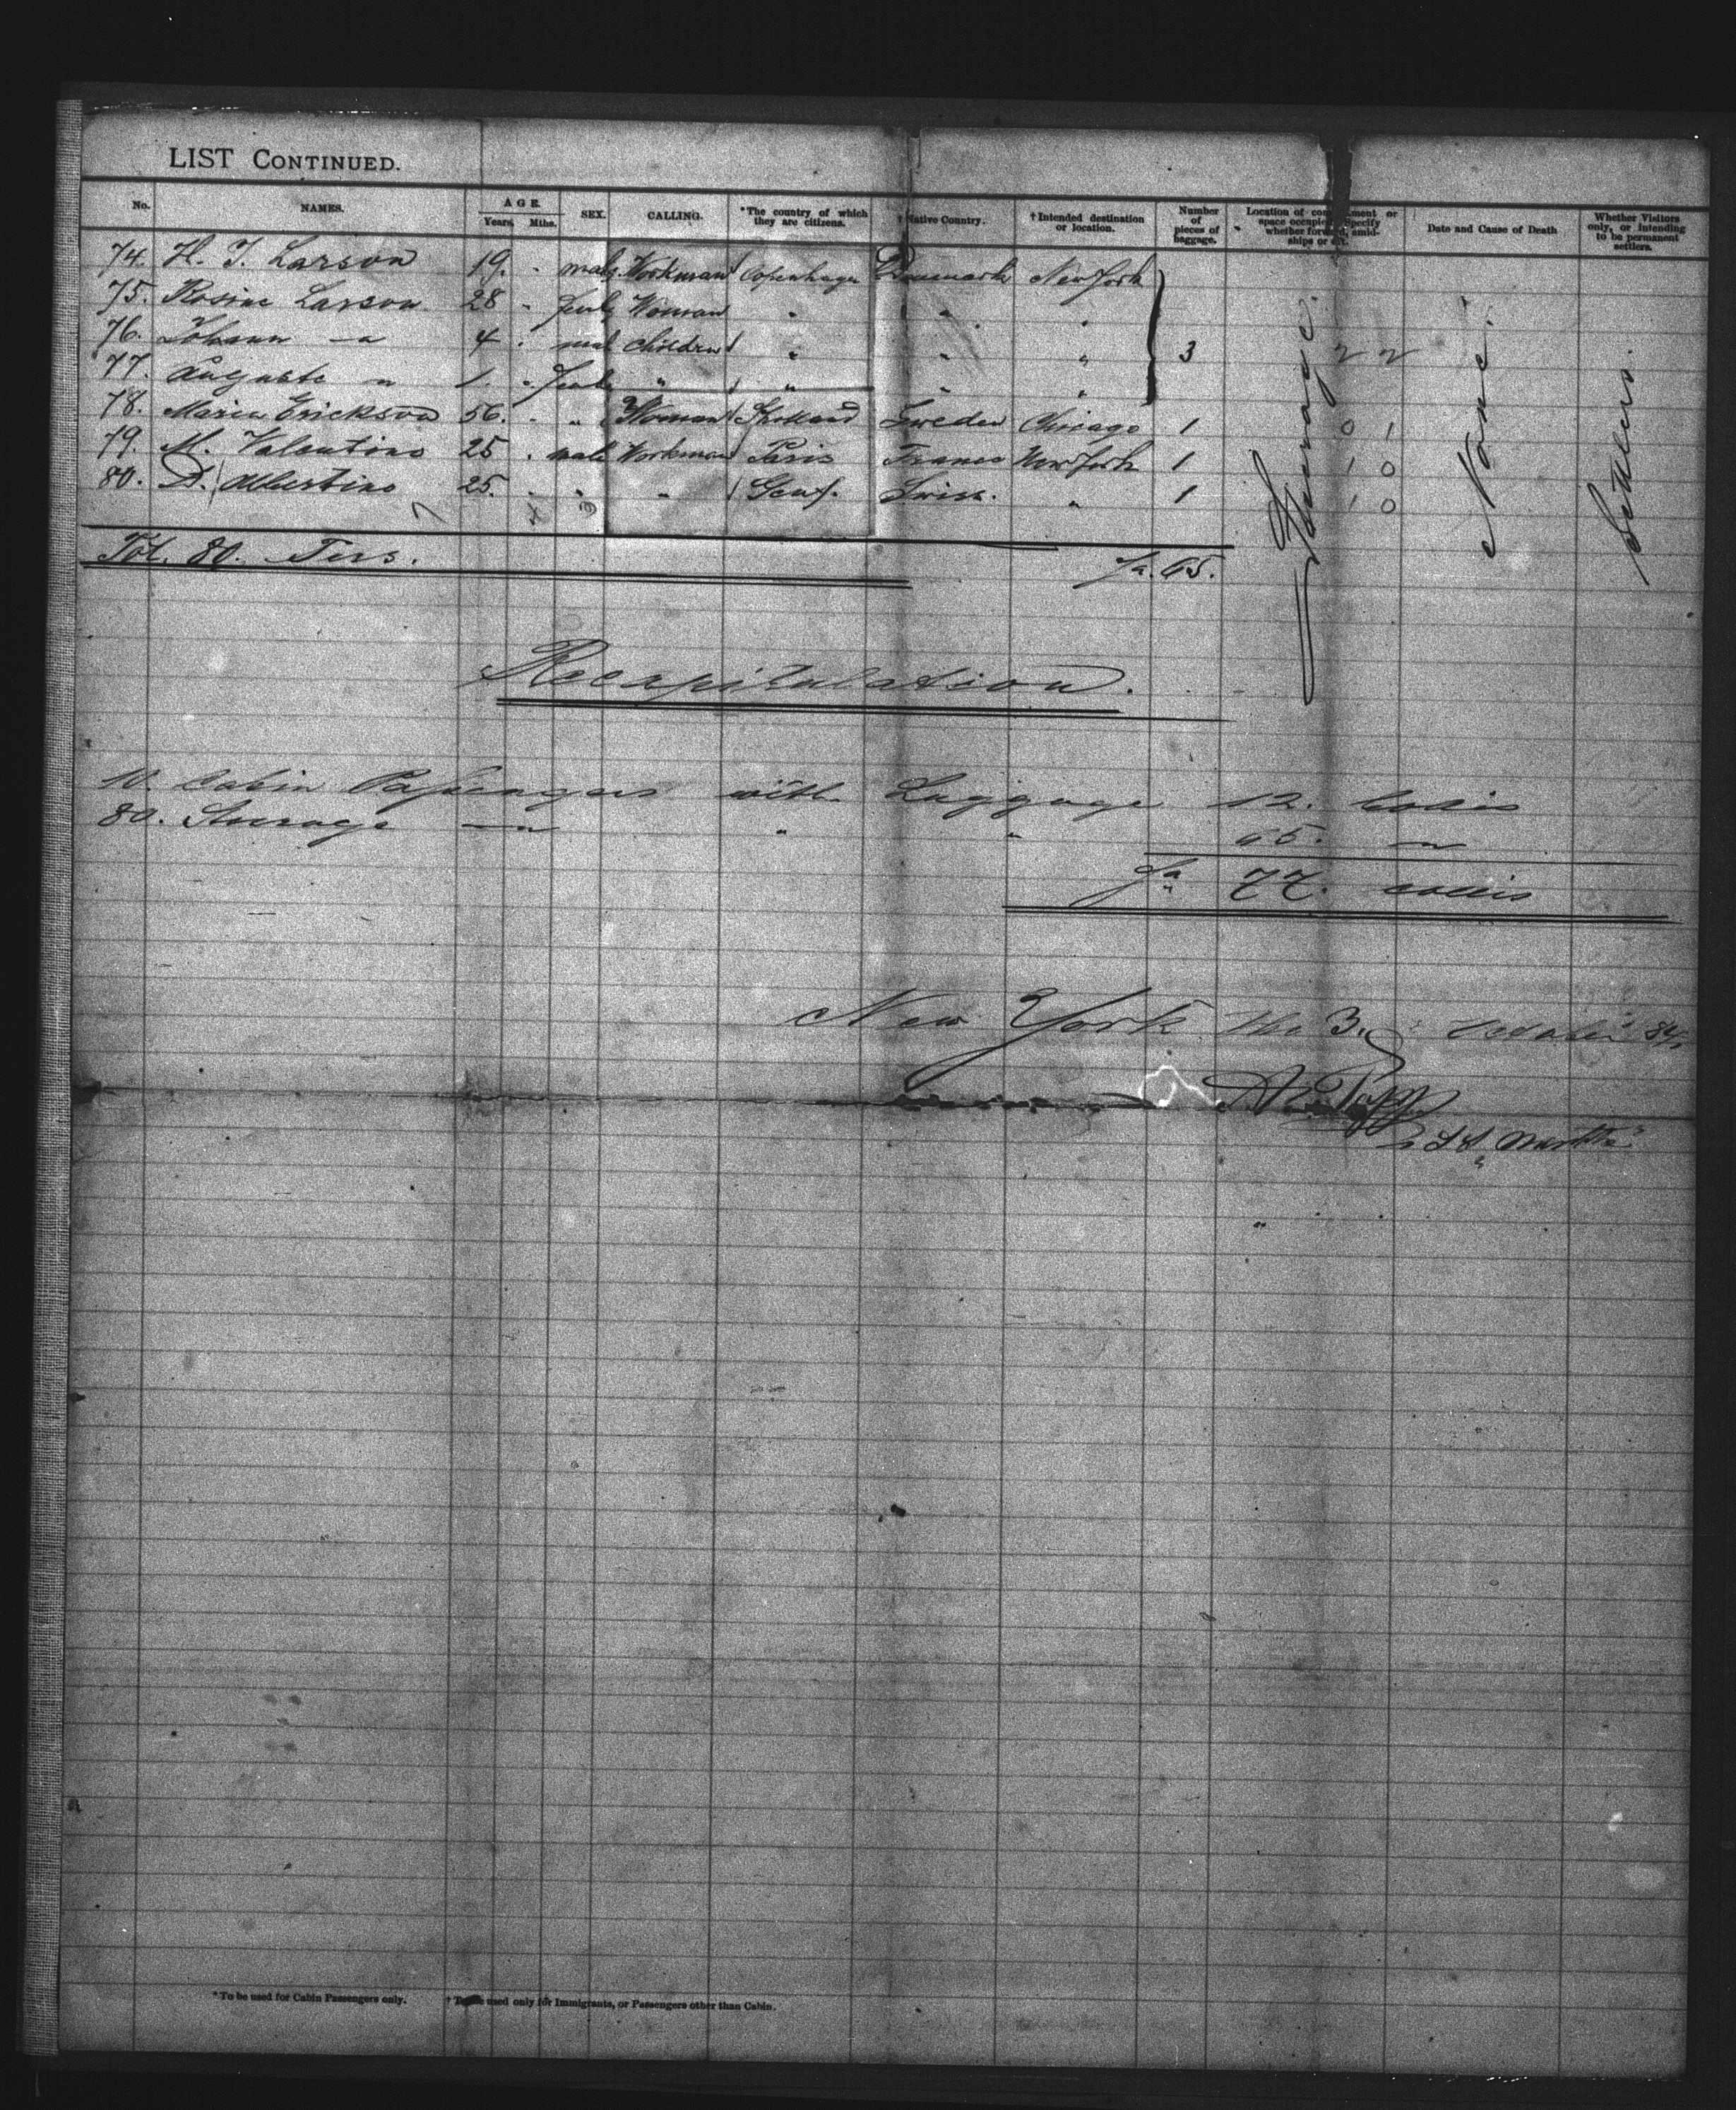 LIST CONTINUED.
No. NAMES. AGE. Years. Mths. SEX. CALLING. *The country of which they are citizens. †Native Country. †Intended destination or location. Number of pieces of baggage. Location of compartment or space occupied. Specify whether forward, amidships or aft. Date and Cause of Death Whether Visitors only, or intending to be permanent settlers.
74. H. J. Larson 19. " male Workman Copenhagen Denmark New York
75. Rosine Larson 28 " Woman " " "
76. Johann " 4 " children " " " 3 2 2
77. Auguste " 1. " " " " "
78. Maria Erickson 56. " " Woman Sweden Chicago 1 0 1
79. M. Valentino 25 " male Workman Paris France New York 1 1 0
80. D. Albertino 25. " " " Genf. Swiss. " 1 1 0
Steerage.
None.
Settlers.
Tot. 80. Pers. 65.
Recapitulation.
10. Cabin Passengers with Luggage 12. Collis
80. Steerage " " " 65. "
77. collis
New York the 3. October 84
*To be used for Cabin Passengers only. †To be used only for Immigrants, or Passengers other than Cabin.